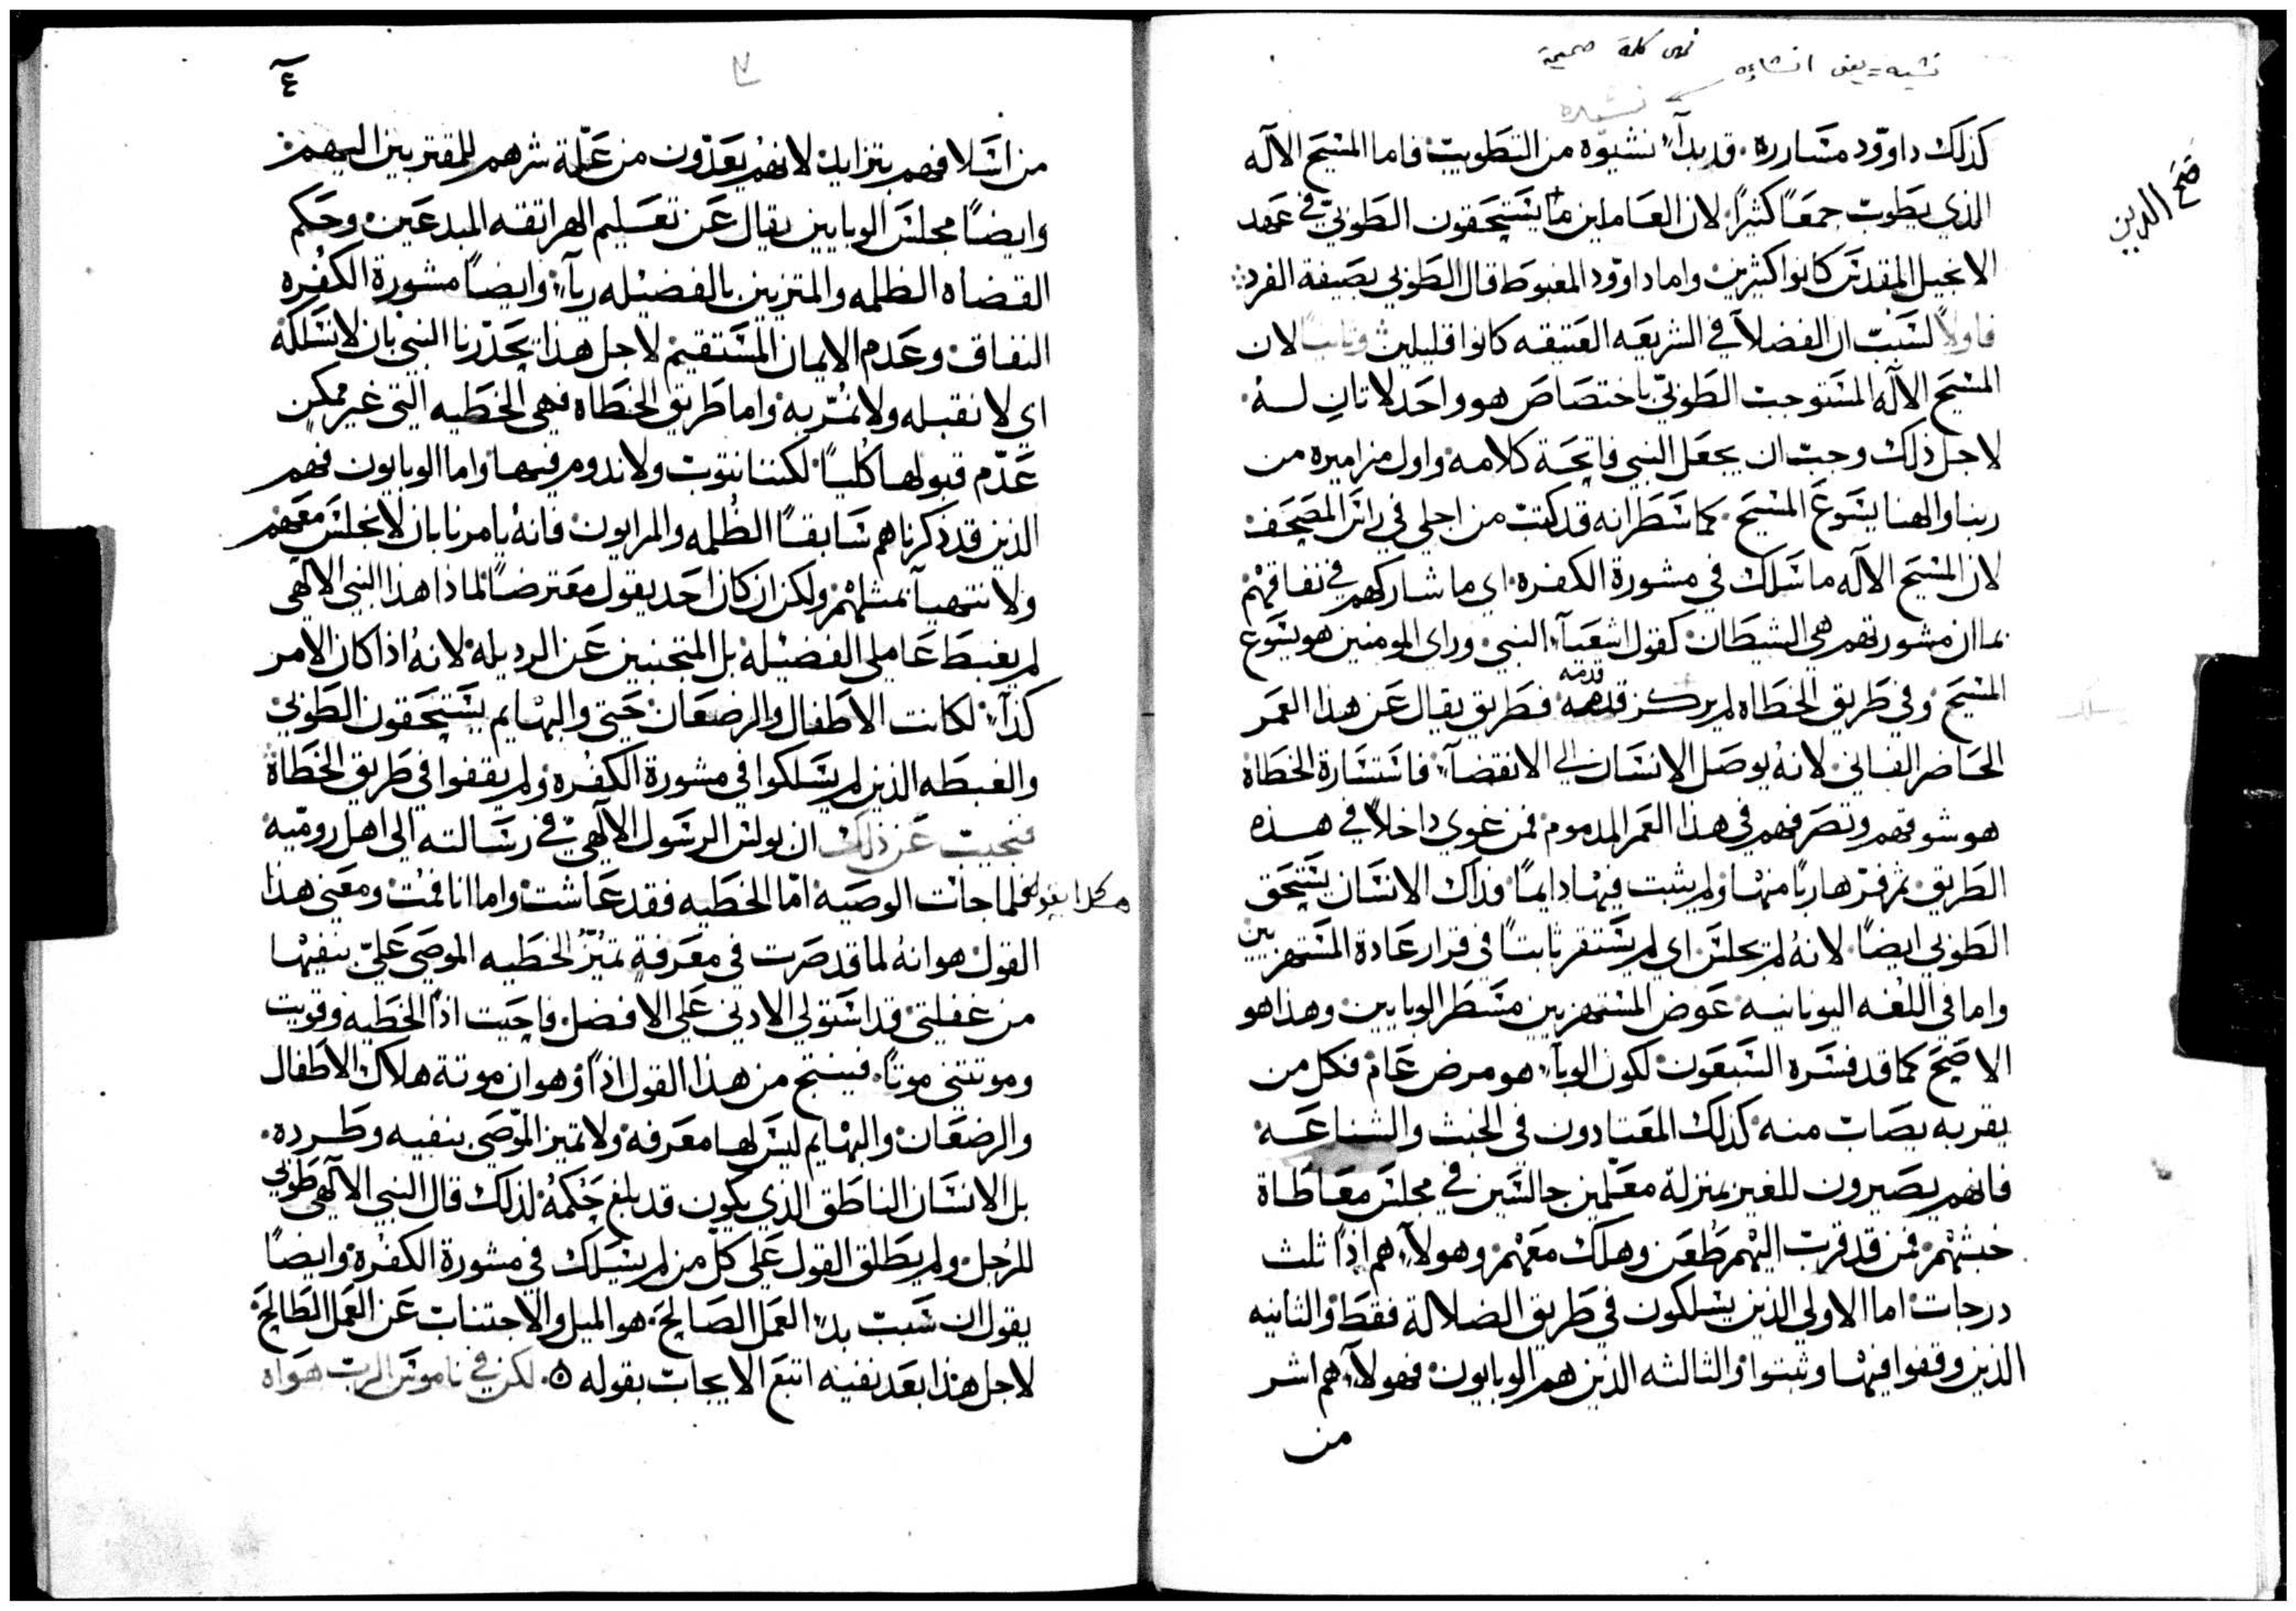 كذلك داوود مساررة. قد بدأ نشيوه من التطويب فاما المسيح الاله
الذي يطوب جمعًا كثيرًا. لان العاملين ما يستحقون الطوبى في عهد
الانجيل المقدس كانوا كثيرين واما داوود المغبوط قال الطوبى بصيغة الفرد
فاولاً لسبب ان الفضلآ في الشريعه العتيقه كانوا قليلين وثانيًا لان
المسيح الاله المستوجب الطوبى باختصاص هو واحد لا ثانٍ له
لاجل ذلك وجب ان يجعل النبي فاتحة كلامه واول مزاميره من
ربنا والهنا يسوع المسيح. كما سطر انه قد كتب من اجلي في راس المصحف
لان المسيح الاله ما سلك في مشورة الكفره. اي ما شاركهم في نفاقهم
بما ان مشورتهم هي الشيطان كقول اشعيآ النبي وراى المومنين هو يسوع
المسيح وفي طريق الخطاه لم يركز قدمه فطريق يقال عن هذا العمر
الحاضر الفاني لانه يوصل الانسان الى الانقضآ فاستشارة الخطاة
هو شوقهم وتصرفهم في هذا العمر المدموم فمن غوى داخلاً في هذه
الطريق ثم فرّ هاربًا منها ولم يثبت فيها دايمًا فذاك الانسان يستحق
الطوبى ايضًا. لانه لم يجلس اي لم يستقر ثابتًا في قرار عادة المستهزين
واما في اللغه اليونانيه عوض المستهزيين مسطر الوبايين وهذا هو
الاصح كما قد فسره السبعون لكون الوبآ هو مرض عام فكل من
يقربه يصاب منه كذلك المعتادون في الخبث والشناعه
فانهم يصيرون للغير بمنزلة معلمين جالسين في مجلس معاطاة
خبثهم فمن قد قرب اليهم طعن وهلك معهم وهولآ هم اذًا ثلث
درجات اما الاولى الذين يسلكون في طريق الضلالة فقط والثانيه
الذين وقفوا فيها وثبتوا والثالثه الذين هم الوبايون فهولآ هم اشر
من
فتح الدين
٤
من اسلافهم بتزايد لانهم يعدّون من علّة شرهم للمقتربين اليهم
وايضًا مجلس الوبايين يقال عن تعليم الهراتقه المبدعين وحكم
القضاه الظلمه والمتزيين بالفضيله ريآ وايضًا مشورة الكفره
النفاق وعدم الايمان المستقيم لاجل هذا يحذرنا النبي بان لا نسلكه
اي لا نقبله ولا نسرّ به واما طريق الخطاه فهي الخطيه التي غير ممكن
عدم قبولها كليًا لكننا نتوب ولا ندوم فيها واما الوبايون فهم
الذين قد ذكرناهم سابقًا الظلمه والمرايون فانه يامرنا بان لا نجلس معهم
ولا نتهيآ بمثلهم ولكن ان كان احد يقول معترضًا لماذا هذا النبي الالهي
لم يغبط عاملي الفضيله بل المتجنبين عن الرديله لانه اذا كان الامر
كذآ لكانت الاطفال والرضعان حتى والبهايم يستحقون الطوبى
والغبطه الذين لم يسلكوا في مشورة الكفره ولم يقفوا في طريق الخطاة
فنجيب عن ذلك ان بولس الرسول الالهي في رسالته الى اهل روميه
هكذا يقول فلما جات الوصيه امّا الخطيه فقد عاشت واما انا فمت ومعنى هذا
القول هو انه لما قد صرت في معرفة تميّز الخطيه الموصى عليّ بنفيها
من غفلتي قد استولى الادنى على الافضل فاحيت اذًا الخطيه وقويت
وموتتني موتًا. فينتج من هذا القول اذًا وهو ان موتة هلاك الاطفال
والرضعان والبهايم ليس لها معرفه ولا تميز الموصى بنفيه وطرده.
بل الانسان الناطق الذي يكون قد بلغ حكمه لذلك قال النبي الالهي طوبى
للرجل ولم يطلق القول على كل من لم يسلك في مشورة الكفره وايضًا
يقول ان سبب بدء العمل الصالح هو الميل والاجتناب عن العمل الطالح
لاجل هذا بعد نفيه اتبع الايجاب بقوله ٥. لكن في ناموس الرب هواه